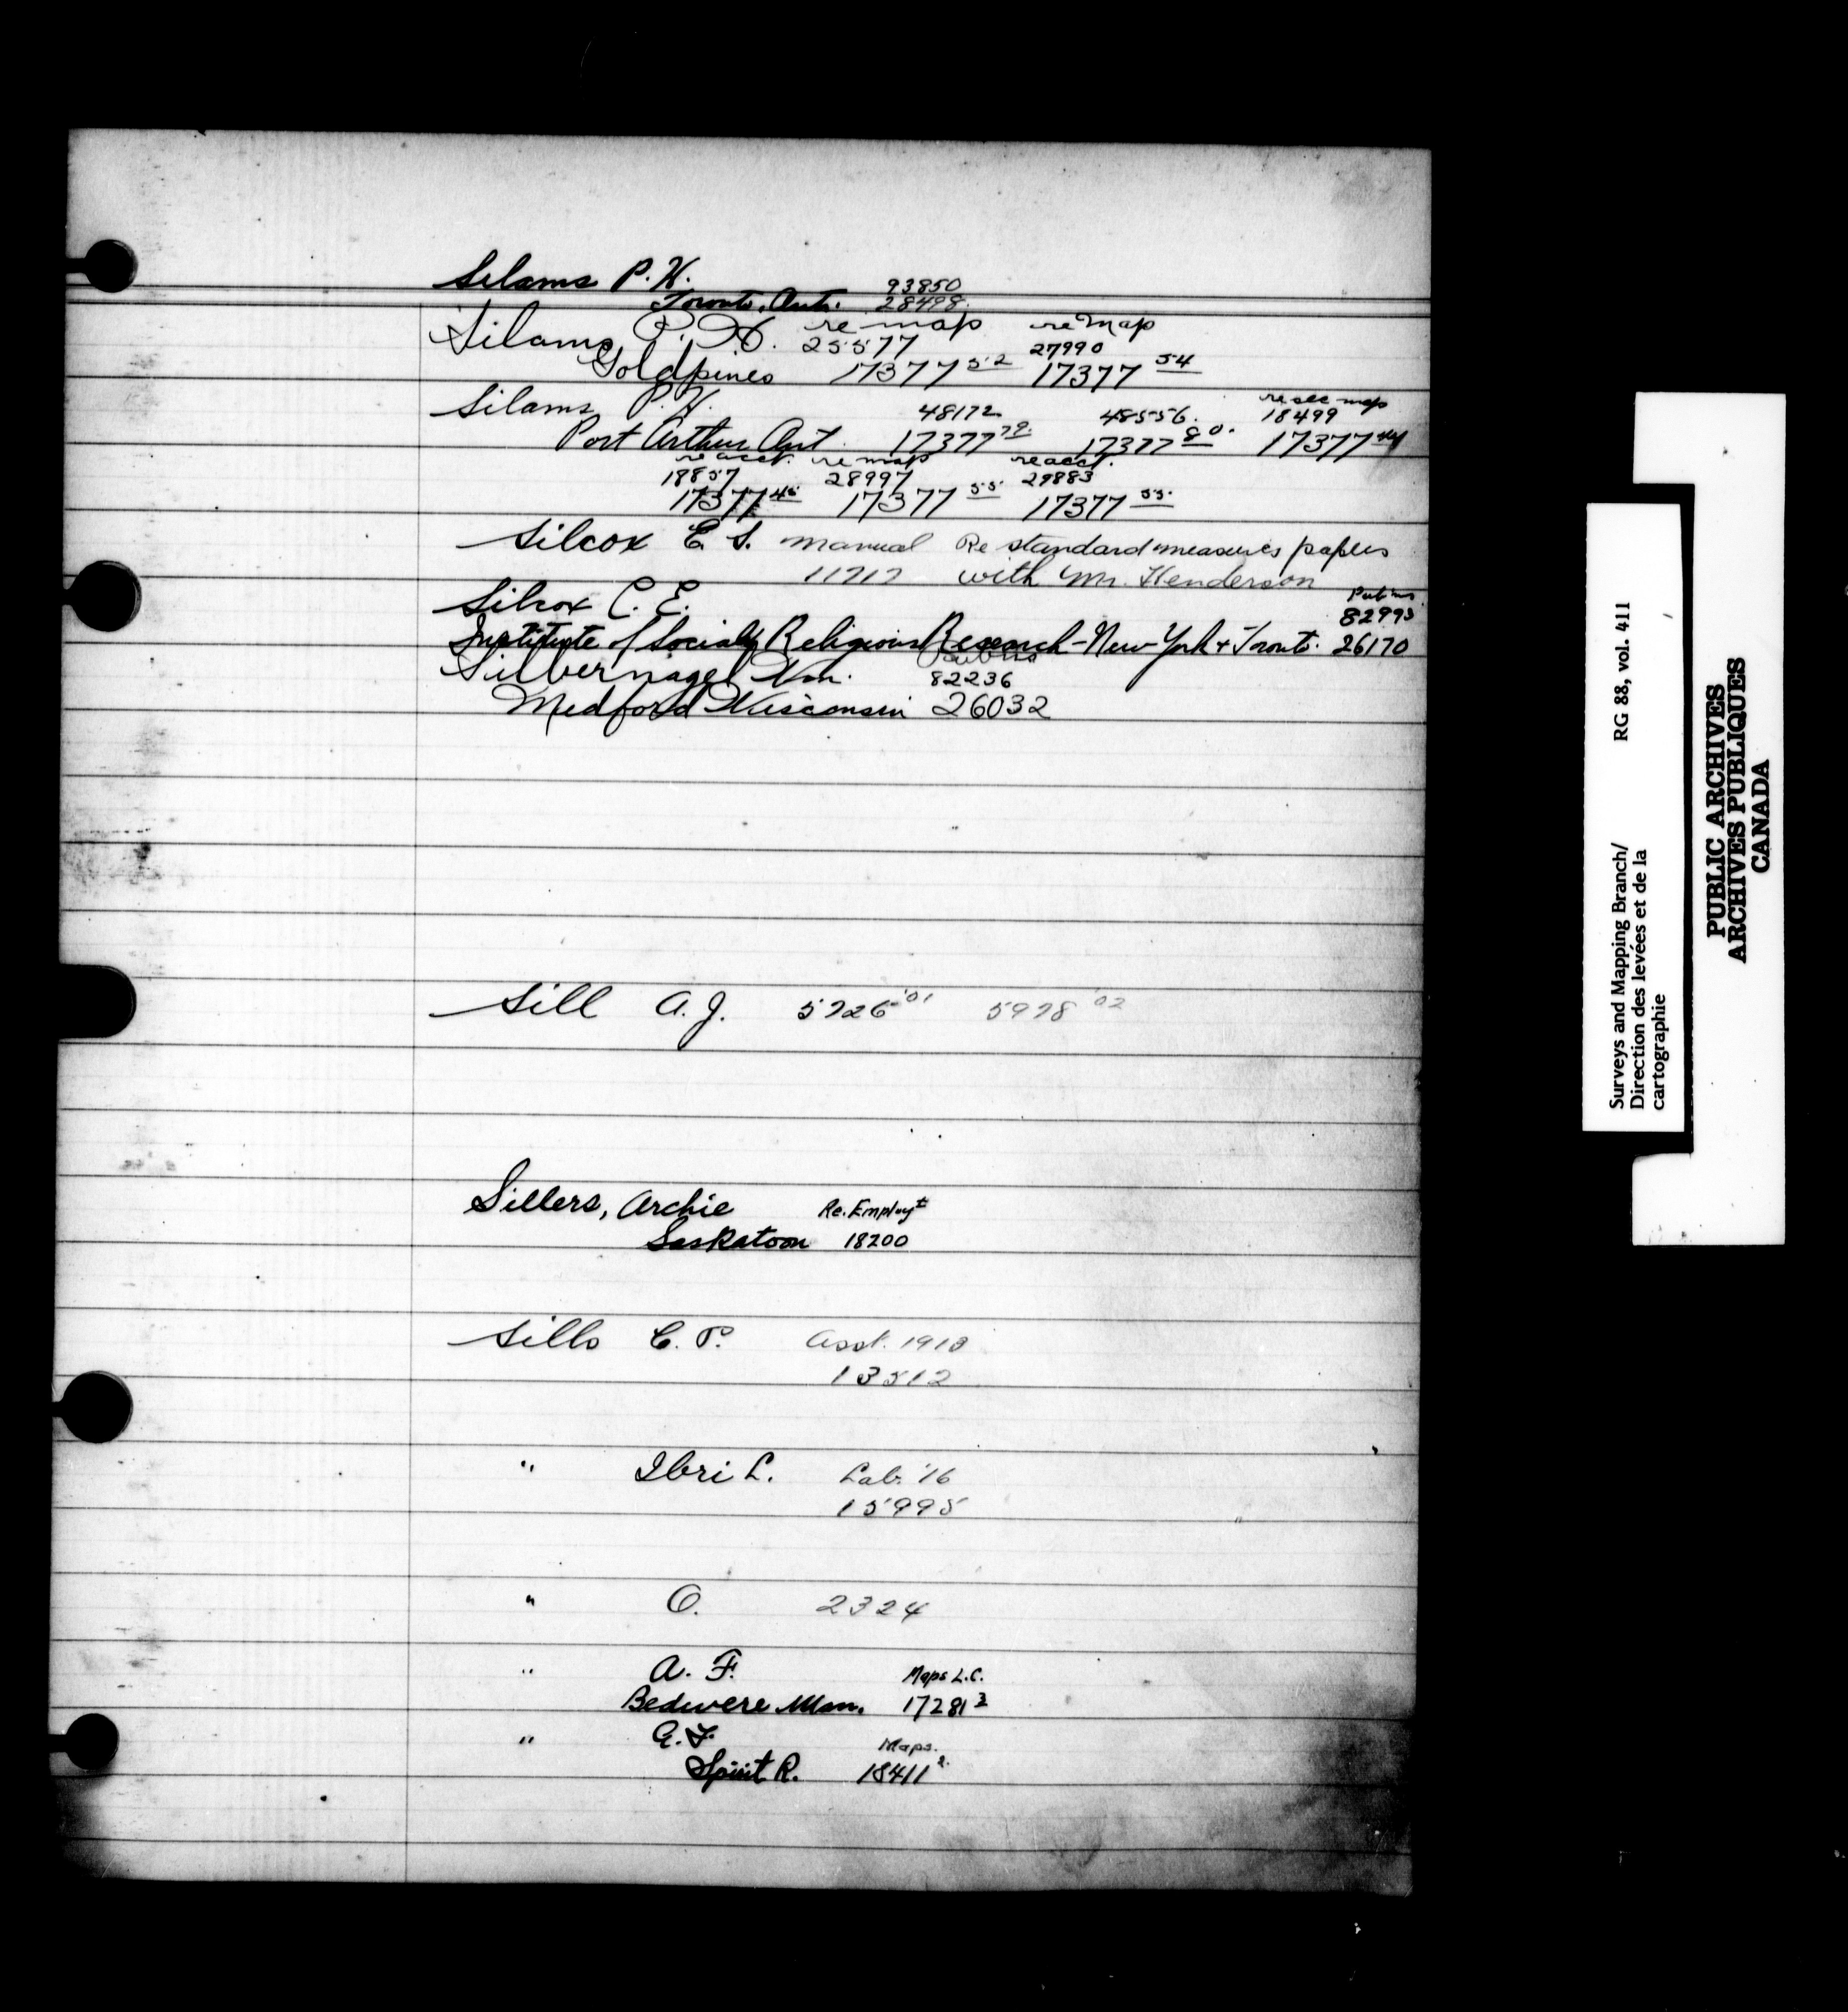 Silams P. H. 93850
Toronto, Ont. 28498
Silams P. H. re map re Map
25577 27990
Goldpines 17377 52 17377 54
Silams P. H. 48172 48556 re sec map 18499
Port Arthur Ont. 17377 79 17377 80 17377 44
re acct. re map re acct.
19857 28997 29883
17377 45 17377 55 17377 55
Silcox E. S. manual Re standard measures papers
11717 with Mr. Henderson
Silcox C. E. Pub'ns 82993
Institute of Social & Religious Research - New York & Toronto. 26170
Silbernagel Wm. Pub'ns 82236
Medford Wisconsin 26032
Sill A. J. 5726 '01 5978 '02
Sillers, Archie Re. Employt
Saskatoon 18200
Sills C. P. Asst. 1913
13512
" Ibri L. Lab. '16
15995
" O. 2324
" A. F. Maps L.C.
Bedivere Man. 17281 3
" G. F. Maps.
Spirit R. 18411 2.
Surveys and Mapping Branch/ RG 88, vol. 411
Direction des levées et de la
cartographie
PUBLIC ARCHIVES
ARCHIVES PUBLIQUES
CANADA